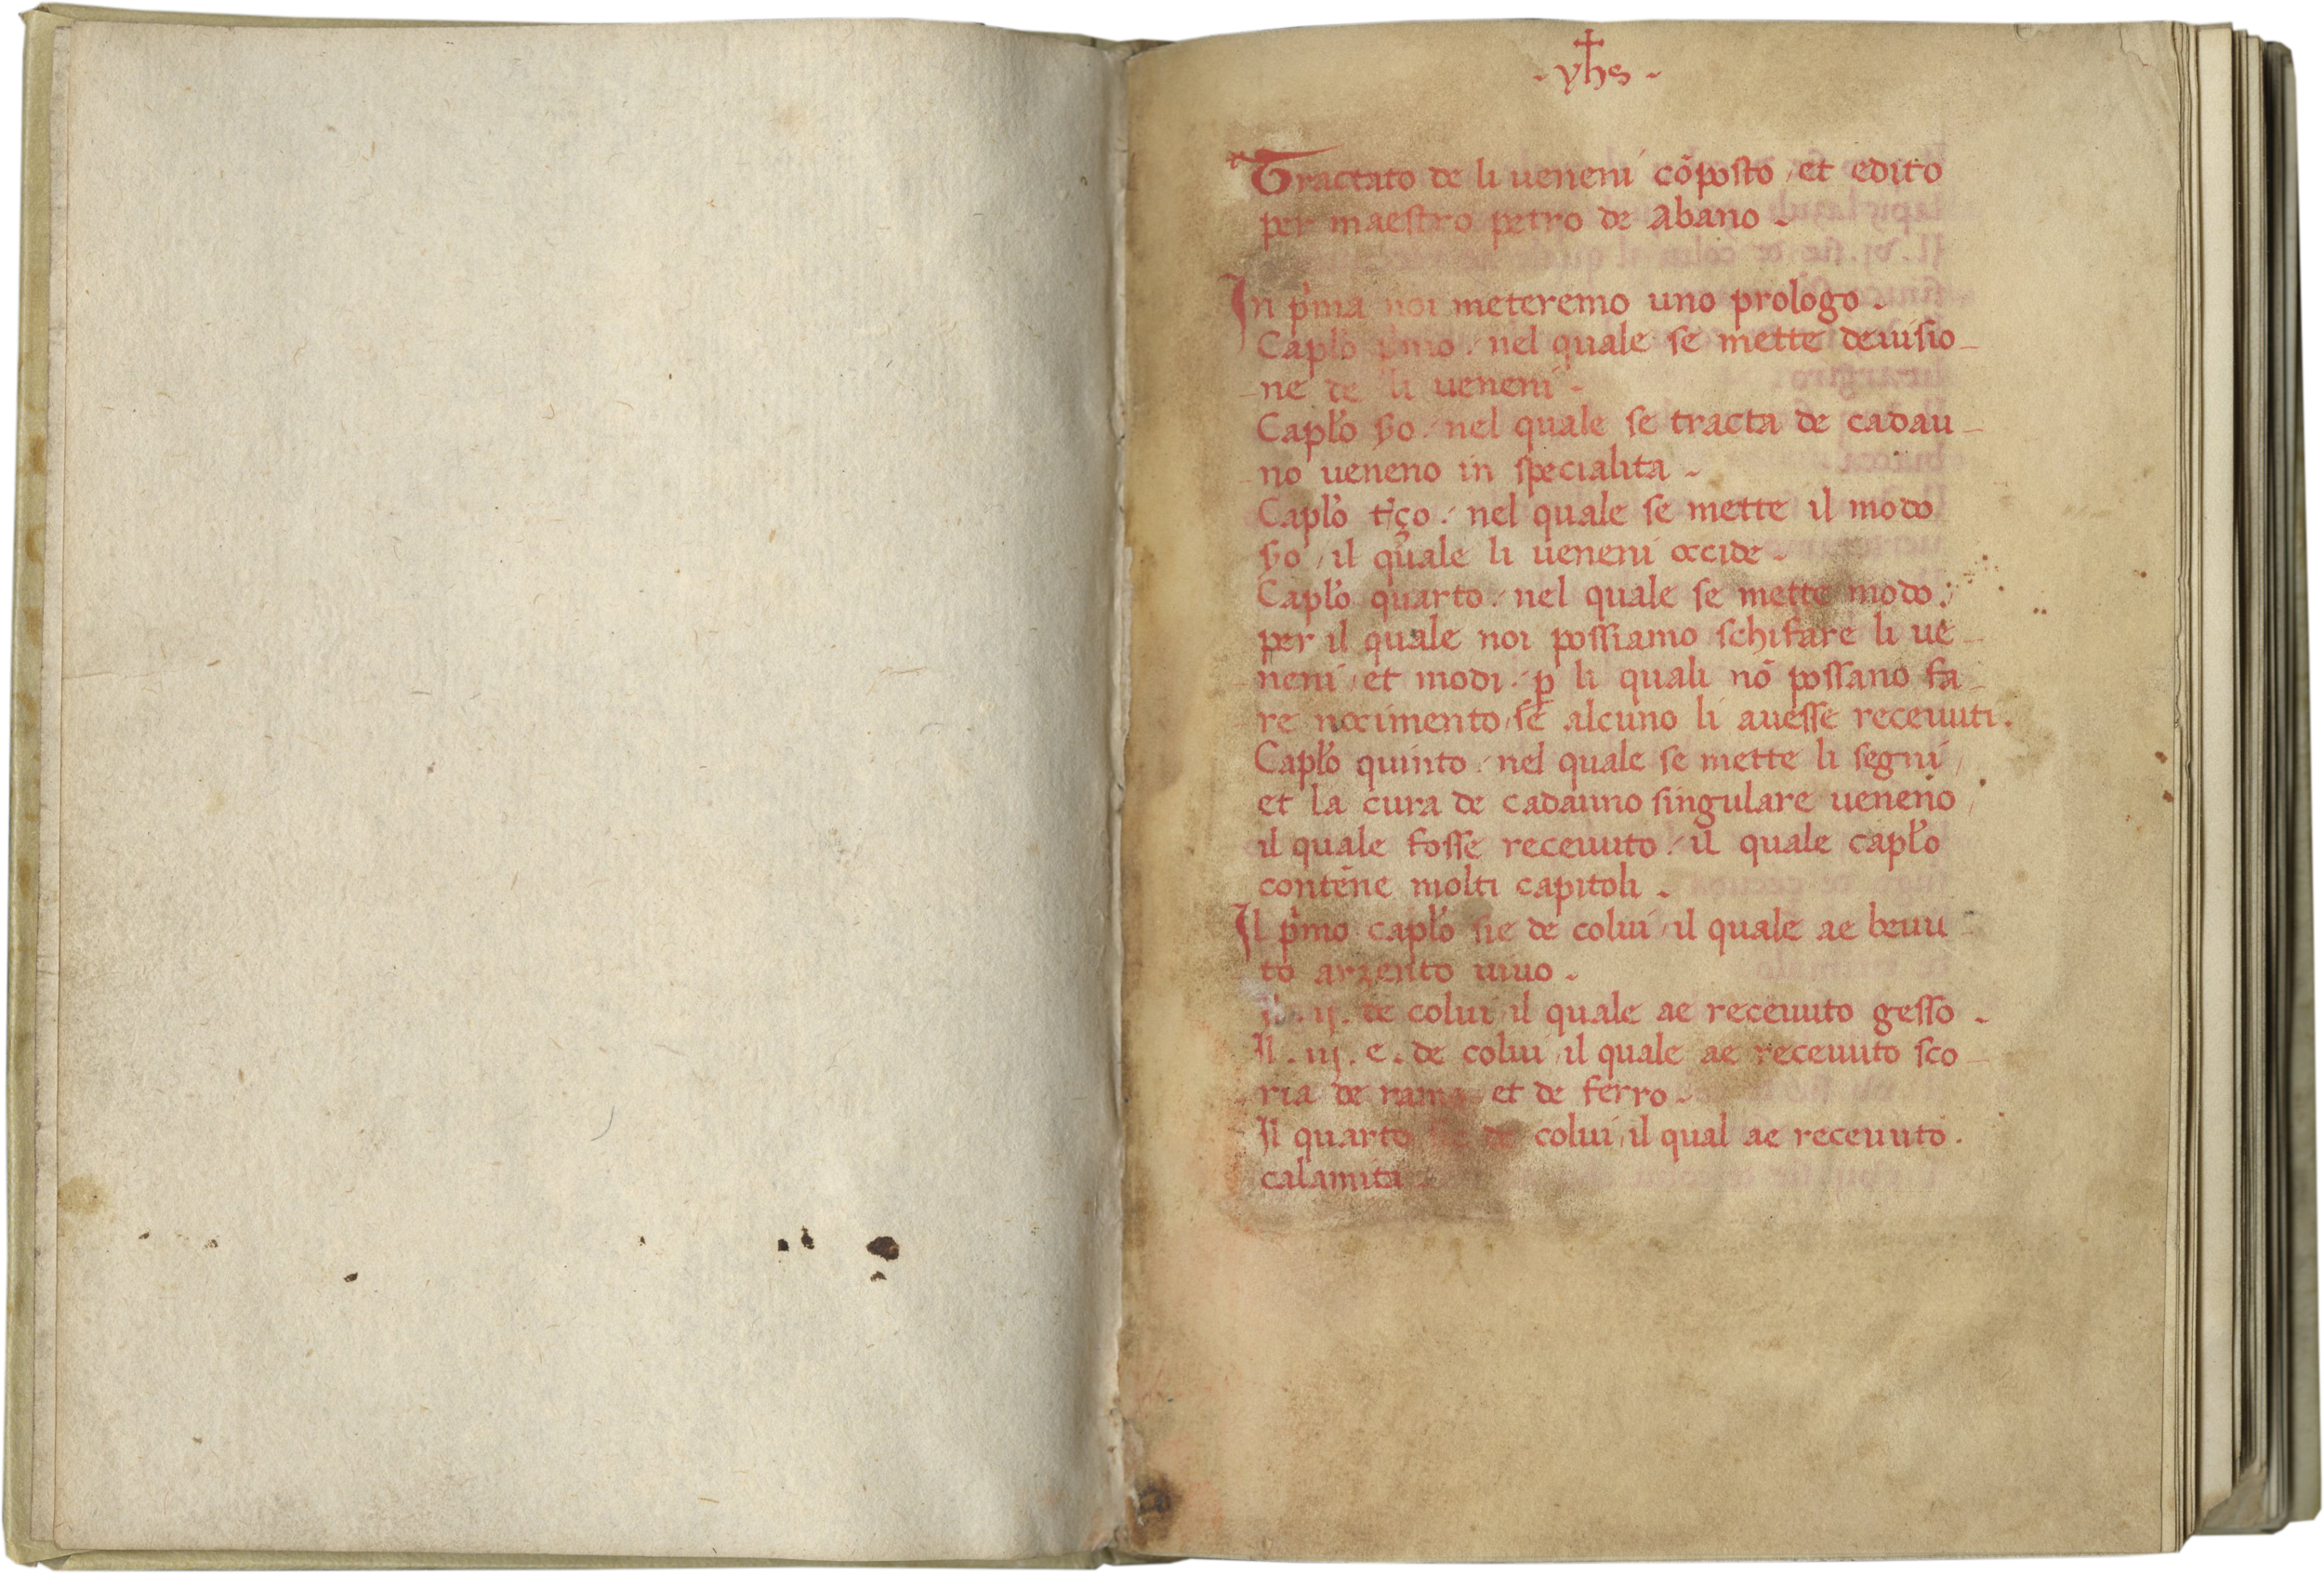 - yħs -
Tractato de li ueneni cōposto / et edito
per maestro petro de Abano -
In p'ma noi meteremo uno prologo -
Caplo p'mo / nel quale se mette deuisio-
-ne de li ueneni -
Capło ẜo / nel quale se tracta de cadau-
-no ueneno in specialita -
Capło t'ço / nel quale se mette il modo
ẜo / il quale li ueneni occide -
Capło quarto / nel quale se mette modo /
per il quale noi possiamo schifare li ue-
-neni / et modi / ꝑ li quali nō possano fa-
-re nocimento / se alcuno li auesse receuuti .
Capło quinto / nel quale se mette li segni /
et la cura de cadauno singulare ueneno /
il quale fosse receuuto / il quale capło
contēne molti capitoli -
Il p'mo capło sie de colui / il quale ae beuu-
to arzento uiuo -
Il . ij . de colui / il quale ae receuuto gesso -
Il . iij . e . de colui / il quale ae receuuto sco-
-ria de rame et de ferro -
Il quarto sie de colui / il qual ae receuuto .
calamita